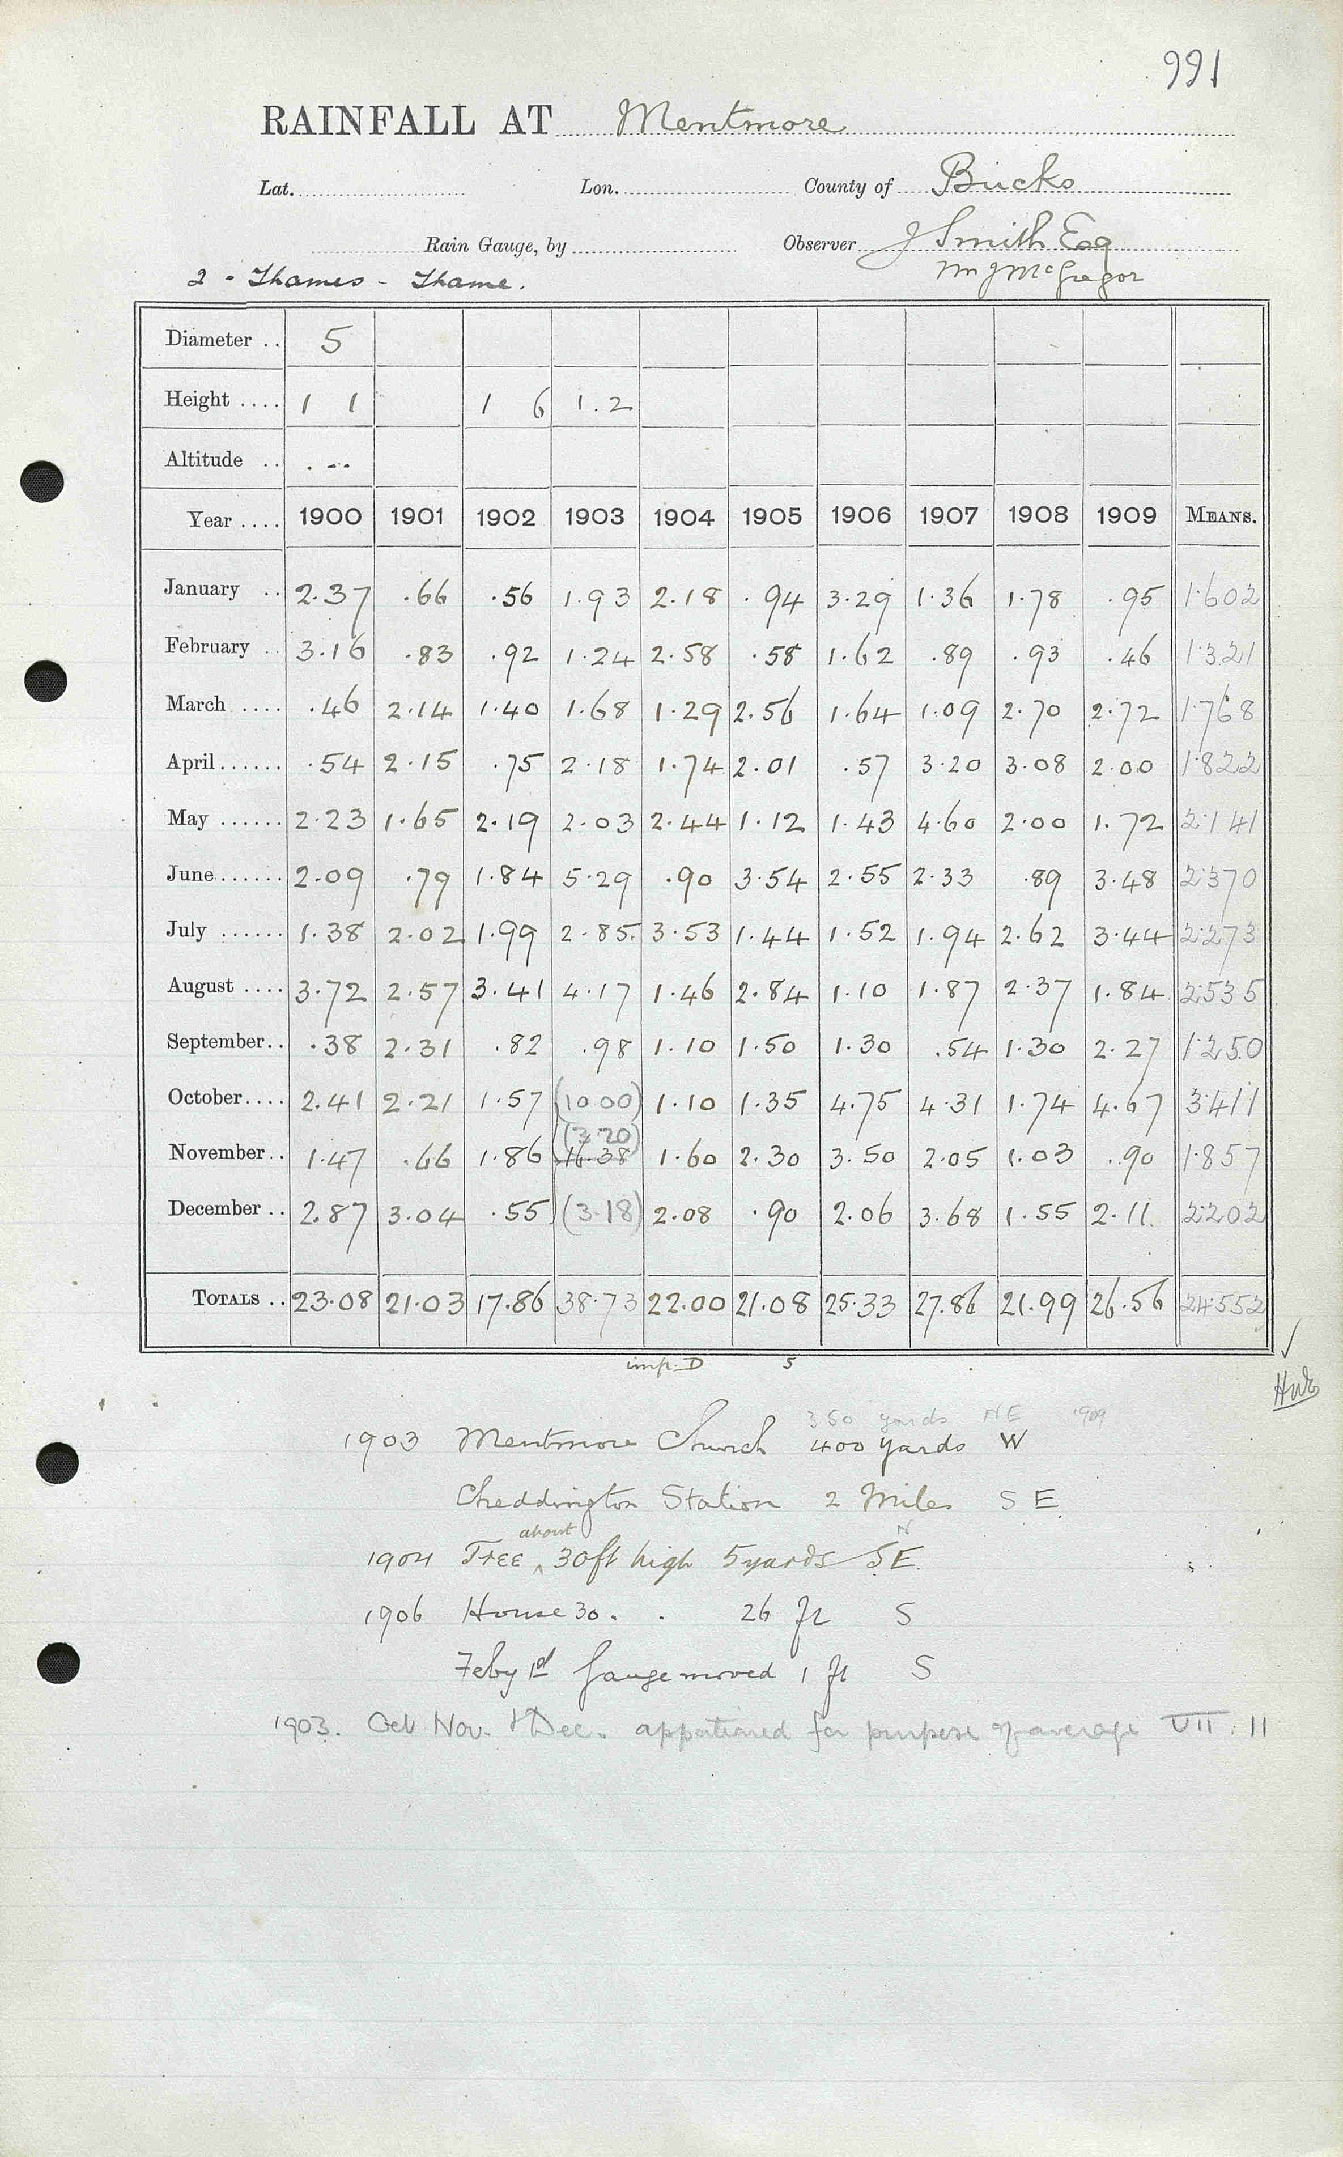 991
RAINFALL AT Mentmore
Lat. Lon. County of Bucks
Rain Gauge, by Observer J Smith Esq
2 - Thames - Thame. Mr J McGregor
Diameter .. 5
Height .... 1 1 1 6 1.2
Altitude .. . --
Year .... 1900 1901 1902 1903 1904 1905 1906 1907 1908 1909 MEANS.
January .. 2.37 .66 .56 1.93 2.18 .94 3.29 1.36 1.78 .95 1.602
February .. 3.16 .83 .92 1.24 2.58 .58 1.62 .89 .93 .46 1.321
March .... .46 2.14 1.40 1.68 1.29 2.56 1.64 1.09 2.70 2.72 1.768
April ...... .54 2.15 .75 2.18 1.74 2.01 .57 3.20 3.08 2.00 1.822
May ...... 2.23 1.65 2.19 2.03 2.44 1.12 1.43 4.60 2.00 1.72 2.141
June ...... 2.09 .79 1.84 5.29 .90 3.54 2.55 2.33 .89 3.48 2.370
July ...... 1.38 2.02 1.99 2.85 3.53 1.44 1.52 1.94 2.62 3.44 2.273
August .... 3.72 2.57 3.41 4.17 1.46 2.84 1.10 1.87 2.37 1.84 2.535
September .. .38 2.31 .82 .98 1.10 1.50 1.30 .54 1.30 2.27 1.250
October .... 2.41 2.21 1.57 (10.00) 1.10 1.35 4.75 4.31 1.74 4.67 3.411
(3.20)
November .. 1.47 .66 1.86 16.38 1.60 2.30 3.50 2.05 1.03 .90 1.857
December .. 2.87 3.04 .55 (3.18) 2.08 .90 2.06 3.68 1.55 2.11 2.202
TOTALS .. 23.08 21.03 17.86 38.73 22.00 21.08 25.33 27.86 21.99 26.56 24.552
imp. D 5
350 yards NE 1909
1903 Mentmore Church 400 yards W
Cheddington Station 2 Miles S E
about N
1904 Tree ^ 30ft high 5 yards S E.
1906 House 30 . . 26 ft S
Feby 1st Gauge moved 1 ft S
1903. Oct Nov. & Dec. apportioned for purpose of average VII. 11